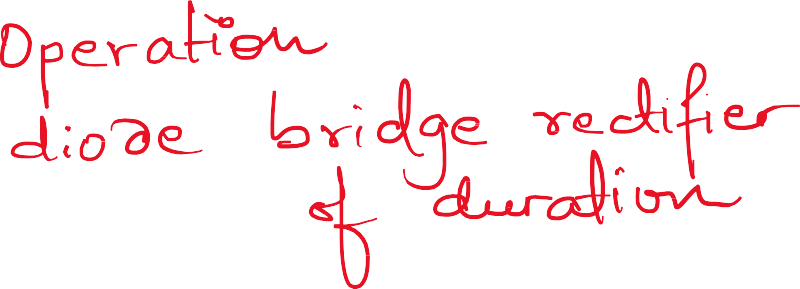 Operation
diode bridge rectifier
of duration